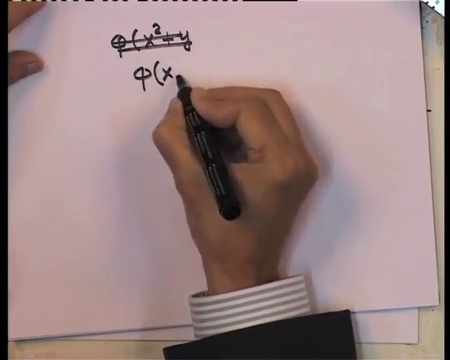 φ(x²+y
φ(x